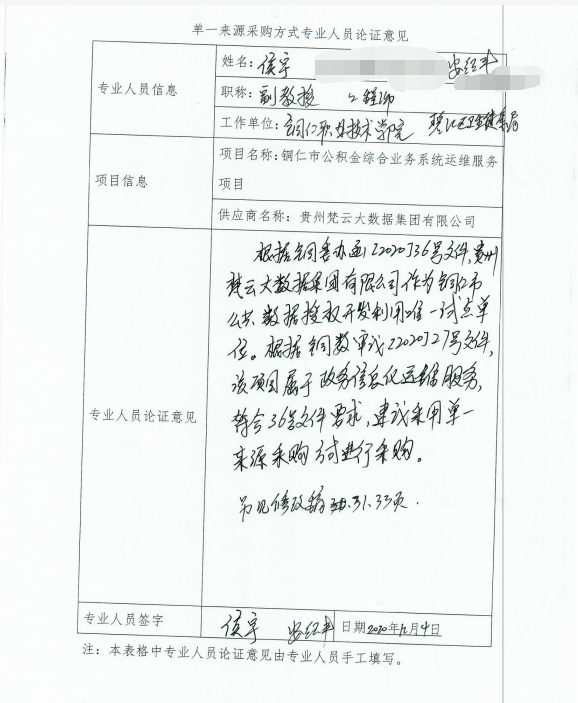 单一来源采购方式专业人员论证意见
专业人员信息
姓名：侯宇
职称：副教授 工程师
工作单位：铜仁职业技术学院
项目信息
项目名称：铜仁市公积金综合业务系统运维服务
项目
供应商名称：贵州梵云大数据集团有限公司
专业人员论证意见
根据铜委办函[2020]36号文件，贵州
梵云大数据集团有限公司作为铜仁市
公共数据授权开发利用唯一试点单
位。根据铜数审议[2020]27号文件，
该项目属于政务信息化运维服务，
符合36号文件要求，建议采用单一
来源采购方式进行采购。
另见修改稿 31.33页.
专业人员签字
侯宇
日期2020年12月4日
注：本表格中专业人员论证意见由专业人员手工填写。